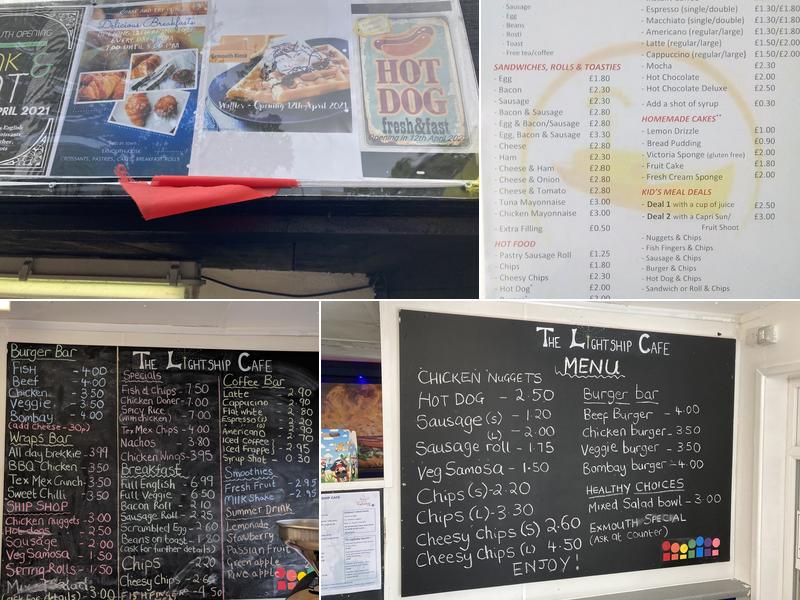 OPENING
&
APRIL 2021
English
COME AND TRY OUR
Delicious Breakfasts
EVERY DAY FROM
7:00 UNTIL 3:00 PM
EXMOUTH KIOSK
CROISSANTS, PASTRIES, CAKES, BREAKFAST ROLLS
Exmouth Kiosk
Waffles - Opening 12th April 2021
HOT
DOG
fresh&fast
Opening in 12th April 2021
- Sausage
- Egg
- Beans
- Rosti
- Toast
- Free tea/coffee
SANDWICHES, ROLLS & TOASTIES
- Egg £1.80
- Bacon £2.30
- Sausage £2.30
- Bacon & Sausage £2.80
- Egg & Bacon/Sausage £2.80
- Egg, Bacon & Sausage £3.30
- Cheese £2.80
- Ham £2.30
- Cheese & Ham £2.80
- Cheese & Onion £2.80
- Cheese & Tomato £2.80
- Tuna Mayonnaise £3.00
- Chicken Mayonnaise £3.00
- Extra Filling £0.50
HOT FOOD
- Pastry Sausage Roll £1.25
- Chips £1.80
- Cheesy Chips £2.30
- Hot Dog* £2.00
£2.00
- Espresso (single/double) £1.30/£1.80
- Macchiato (single/double) £1.30/£1.80
- Americano (regular/large) £1.30/£1.80
- Latte (regular/large) £1.50/£2.00
- Cappuccino (regular/large) £1.50/£2.00
- Mocha £2.30
- Hot Chocolate £2.00
- Hot Chocolate Deluxe £2.50
- Add a shot of syrup £0.30
HOMEMADE CAKES**
- Lemon Drizzle £1.00
- Bread Pudding £0.90
- Victoria Sponge (gluten free) £2.00
- Fruit Cake £1.80
- Fresh Cream Sponge £2.00
KID'S MEAL DEALS
- Deal 1 with a cup of juice £2.50
- Deal 2 with a Capri Sun/ £3.00
Fruit Shoot
- Nuggets & Chips
- Fish Fingers & Chips
- Sausage & Chips
- Burger & Chips
- Hot Dog & Chips
- Sandwich or Roll & Chips
THE LIGHTSHIP CAFE
Burger Bar
FISH - 4.00
Beef - 4.00
Chicken - 3.50
Veggie - 3.50
Bombay - 4.00
(add cheese - 30p)
Wraps Bar
All day brekkie - 3.99
BBQ Chicken - 3.50
Tex Mex Crunch - 3.50
Sweet Chilli - 3.50
SHIP SHOP
Chicken nuggets - 3.00
Hot dogs - 2.50
Sausage - 2.00
Veg Samosa - 1.50
Spring Rolls - 1.50
Mixed Salad
(ask for details) - 3.00
Specials
Fish & Chips - 7.50
Chicken Doner - 7.00
Spicy Rice
(with chicken) - 7.00
Tex Mex Chips - 4.00
Nachos - 3.80
Chicken Wings - 3.95
Breakfast
Full English - 6.99
Full Veggie - 6.50
Bacon Roll - 2.10
Sausage Roll - 2.25
Scrambled Egg - 2.60
Beans on toast - 1.80
(ask for further details)
Chips 2.20
Cheesy Chips - 2.60
FISH FINGERS - 4.50
Coffee Bar
Latte - 2.90
Cappuccino - 2.90
Flat white - 2.80
Espresso
Americano
Iced Coffee - 2.70
Iced Frappe - 2.95
Syrup Shot - 0.30
Smoothies
Fresh Fruit - 2.95
Milk Shake - 2.95
Summer Drink
Lemonade
Strawberry
Passion Fruit
Green apple
Pineapple
THE LIGHTSHIP CAFE
MENU
CHICKEN NUGGETS
HOT DOG - 2.50
Sausage (S) - 1.20
(L) - 2.00
Sausage roll - 1.75
Veg Samosa - 1.50
Chips (S) - 2.20
Chips (L) - 3.30
Cheesy chips (S) 2.60
Cheesy chips (L) 4.50
ENJOY!
Burger bar
Beef Burger - 4.00
Chicken burger - 3.50
Veggie burger - 3.50
Bombay burger - 4.00
HEALTHY CHOICES
Mixed Salad bowl - 3.00
EXMOUTH SPECIAL
(ASK AT COUNTER)